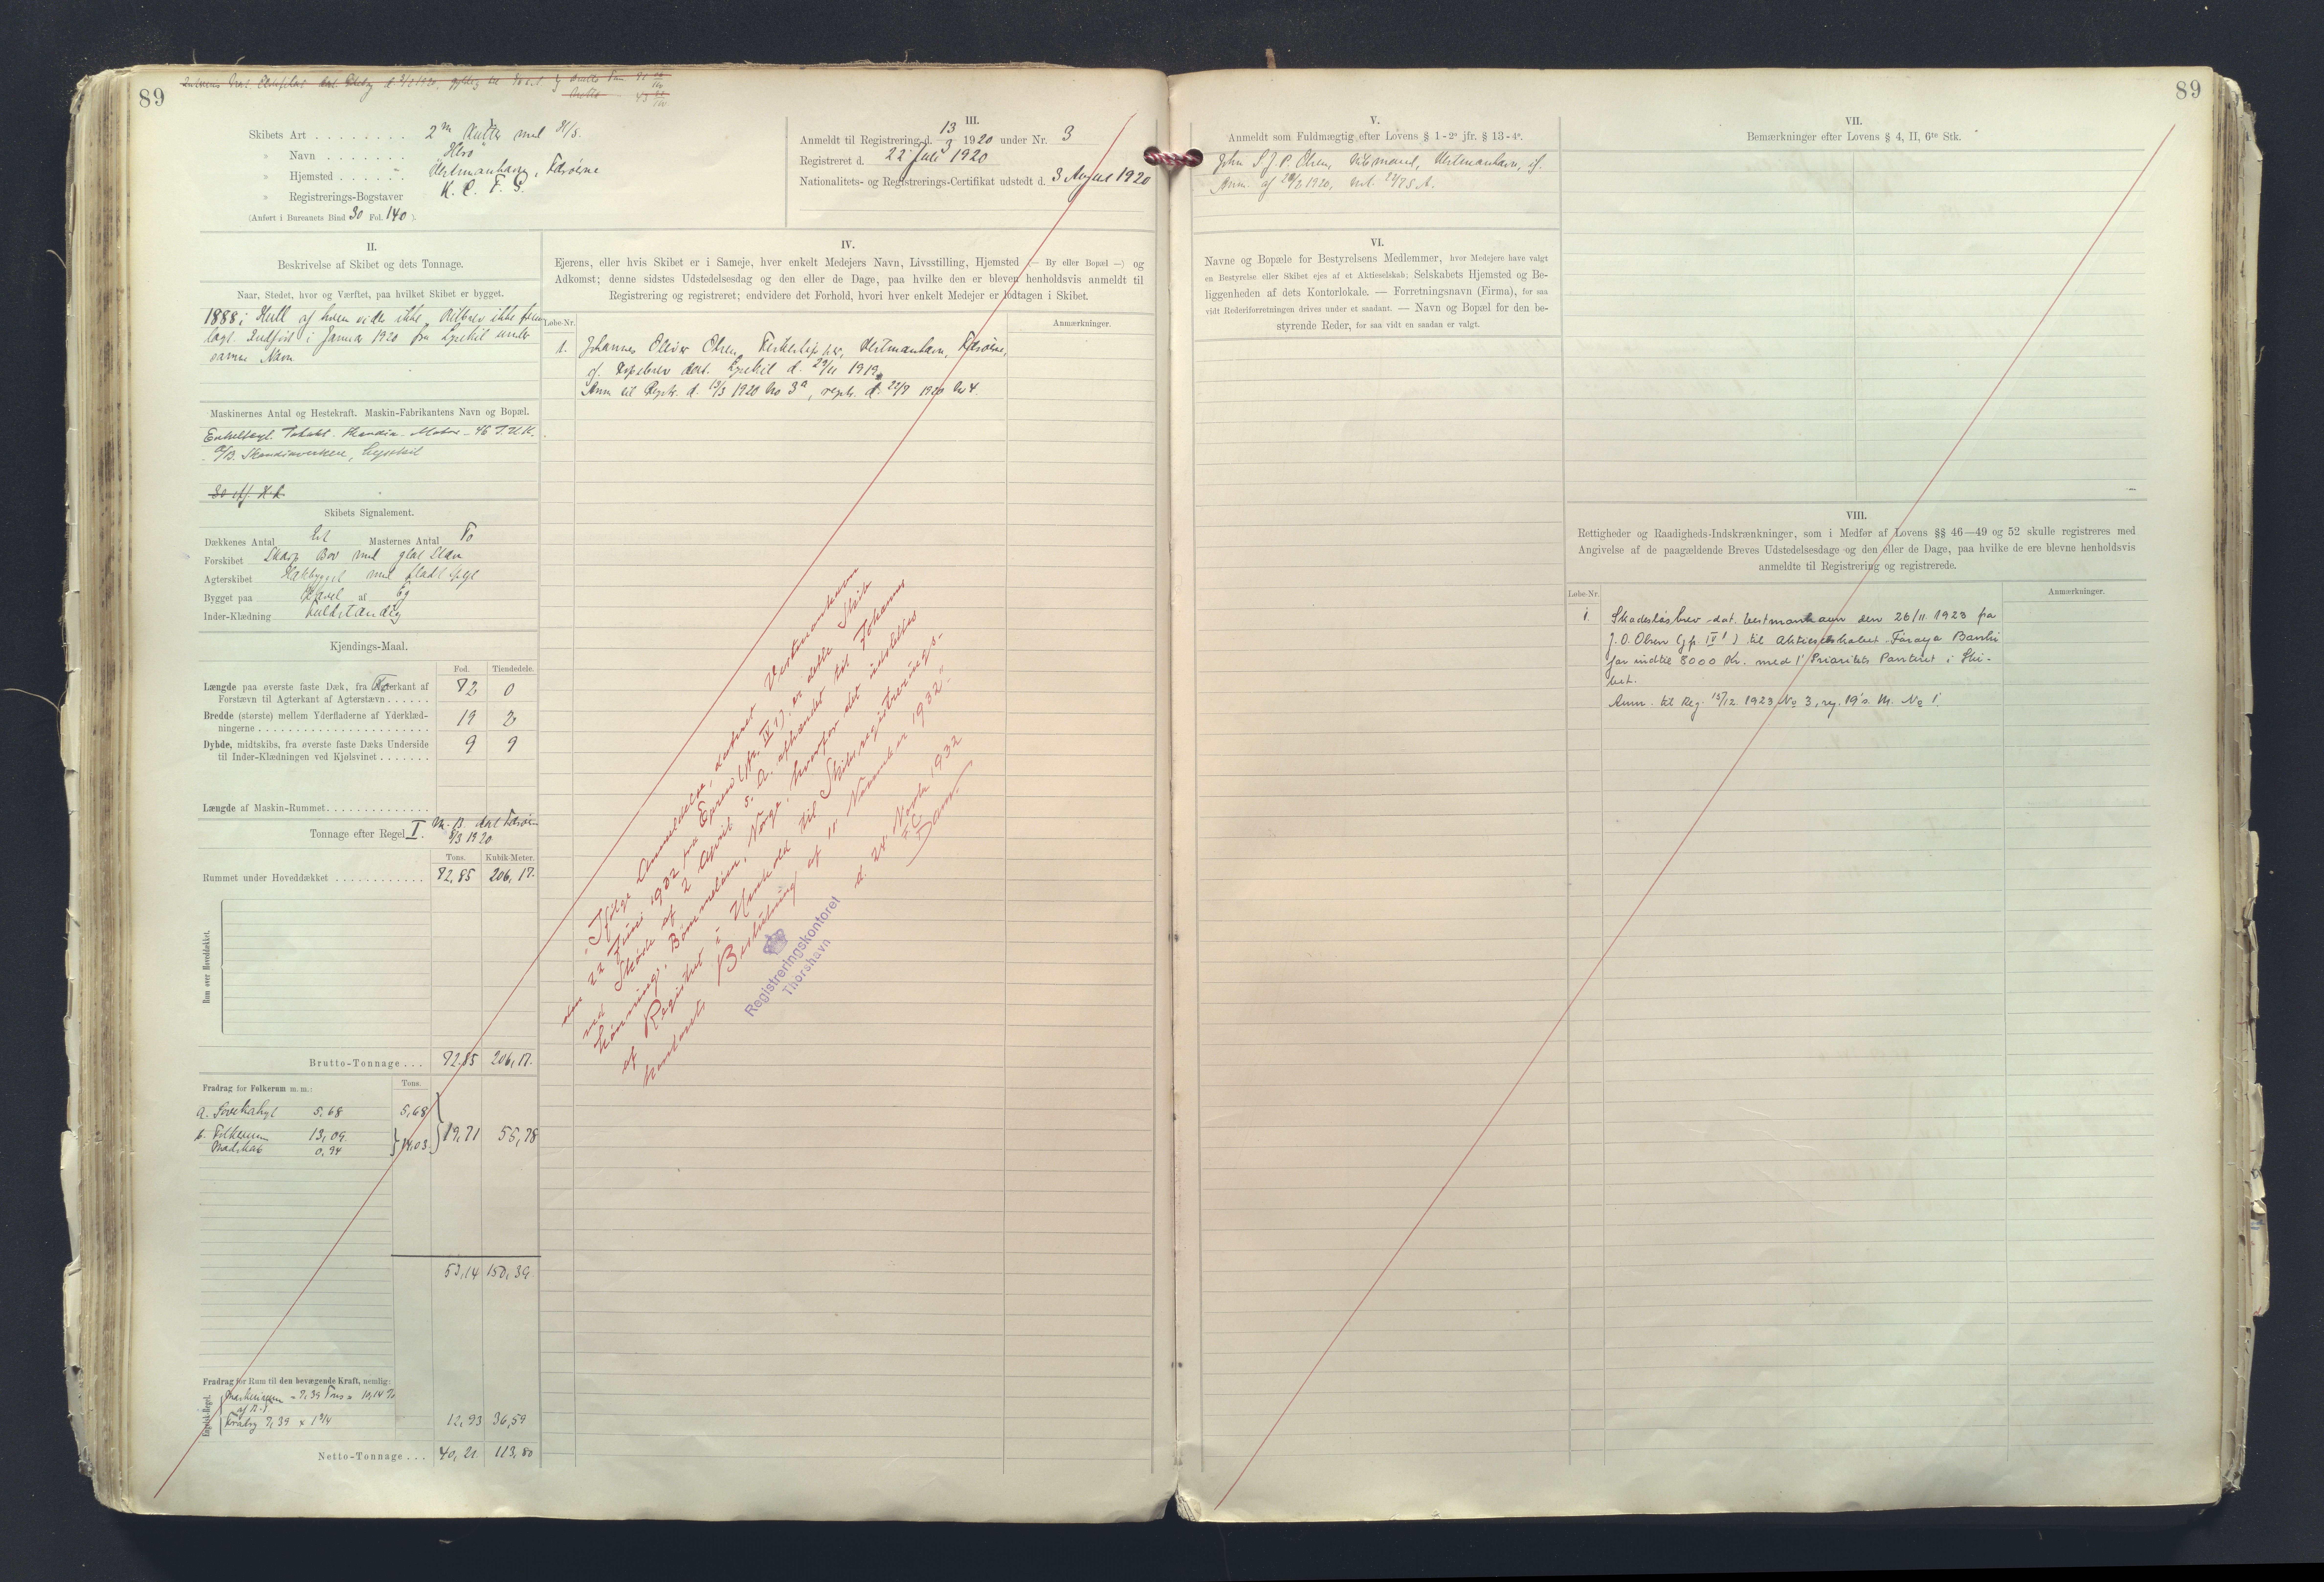 89
Skibets Art . . . . . . . . 2 m Kutter med
» Navn . . . . . . . "Hero"
» Hjemsted . . . . . . Vestmanhavn, Færøerne
» Registrerings-Bogstaver N. C. F. S.
(Anført i Bureauets Bind 30 Fol. 140 ).
III.
Anmeldt til Registrering d. 13/3 1920 under Nr. 3
Registreret d. 22' Juli 1920
Nationalitets- og Registrerings-Certifikat udstedt d. 3 August 1920
II.
Beskrivelse af Skibet og dets Tonnage.
Naar, Stedet, hvor og Værftet, paa hvilket Skibet er bygget.
1888 i Hull af hvem vides ikke. Bilbrev ikke frem
lagt. Indført i Januar 1920 fra Lysekil under
samme Navn
Maskinernes Antal og Hestekraft. Maskin-Fabrikantens Navn og Bopæl.
Enkeltcyl. 2takt. Skandia-Motor - 46 I.H.K.
A/B. Skandiaverken, Lysekil
30 eff. H.K.
Skibets Signalement.
Dækkenes Antal Et Masternes Antal To
Forskibet Skarp Bov med glat Stævn
Agterskibet Hækbygget med fladt Spejl
Bygget paa Kravel af Eg
Inder-Klædning Fuldstændig
Kjendings-Maal.
Fod. Tiendedele.
Længde paa øverste faste Dæk, fra Forkant af
Forstævn til Agterkant af Agterstævn . . . . . . 72 0
Bredde (største) mellem Yderfladerne af Yderklæd-
ningerne . . . . . . . . . . . . 19 2
Dybde, midtskibs, fra øverste faste Dæks Underside
til Inder-Klædningen ved Kjølsvinet . . . . . . . 9 9
Længde af Maskin-Rummet . . . . . . . . . . . . . .
Tonnage efter Regel I. M. B. dat. Færøerne
8/3 1920
Tons. Kubik-Meter.
Rummet under Hoveddækket . . . . . . . . . . . . 72,85 206,17.
Rum over Hoveddækket.
Brutto-Tonnage . . . 72,85 206,17.
Fradrag for Folkerum m. m.: Tons.
a. Soveкahyt 5,68 5,68
b. Folkerum 13,09 14,03 19,71 55,78
Madskab 0,94
53,14 150,39
Fradrag for Rum til den bevægende Kraft, nemlig:
Maskinrum = 7,39 Tons = 10,14 %
af B.T.
Fradrag 7,39 x 1 3/4 12,93 36,59
Netto-Tonnage . . . 40,21 113,80
IV.
Ejerens, eller hvis Skibet er i Sameje, hver enkelt Medejers Navn, Livsstilling, Hjemsted (— By eller Bopæl —) og
Adkomst; denne sidstes Udstedelsesdag og den eller de Dage, paa hvilke den er bleven henholdsvis anmeldt til
Registrering og registreret; endvidere det Forhold, hvori hver enkelt Medejer er lodtagen i Skibet.
Løbe-Nr. Anmærkninger.
1. Johannes Oliver Olsen, Fiskeskipper, Vestmanhavn, Færøerne,
if. Købebrev dat. Lysekil d. 29/11 1919.
Anm. til Registr. d. 13/3 1920 No 3a, registr. d. 22/7 1920 Nr 4.
Ifølge Anmeldelse, dateret Vestmanhavn
den 22 Juni 1932 fra Ejeren (jfr. IV 1) er dette Skib
ved Skøde af 2 April s. A. afhændet til Johannes
Hønning, Bømmeløen, Norge, hvorfor det udslettes
af Registret i Henhold til Skibsregistrerings-
kontorets Beslutning af 11 November 1932.
d. 24 Novbr 1932
Dam
Registreringskontoret
Thorshavn
89
V.
Anmeldt som Fuldmægtig efter Lovens § 1 - 2° jfr. § 13 - 4°.
John S. J. P. Olsen, Vestmanhavn, if.
VI.
Navne og Bopæle for Bestyrelsens Medlemmer, hvor Medejere have valgt
en Bestyrelse eller Skibet ejes af et Aktieselskab; Selskabets Hjemsted og Be-
liggenheden af dets Kontorlokale. — Forretningsnavn (Firma), for saa
vidt Rederiforretningen drives under et saadant. — Navn og Bopæl for den be-
styrende Reder, for saa vidt en saadan er valgt.
VII.
Bemærkninger efter Lovens § 4, II, 6te Stk.
VIII.
Rettigheder og Raadigheds-Indskrænkninger, som i Medfør af Lovens §§ 46—49 og 52 skulle registreres med
Angivelse af de paagældende Breves Udstedelsesdage og den eller de Dage, paa hvilke de ere blevne henholdsvis
anmeldte til Registrering og registrerede.
Løbe-Nr. Anmærkninger.
1 Skadesløsbrev dat. Vestmanhavn den 26/11 1923 fra
J. O. Olsen (jfr. IV 1) til Aktieselskabet Føroya Banki
for indtil 8000 Kr. med 1' Prioritets Panteret i Ski-
bet.
Anm. til Reg. 15/12 1923 No 3, reg. 19' s. M. No 1.